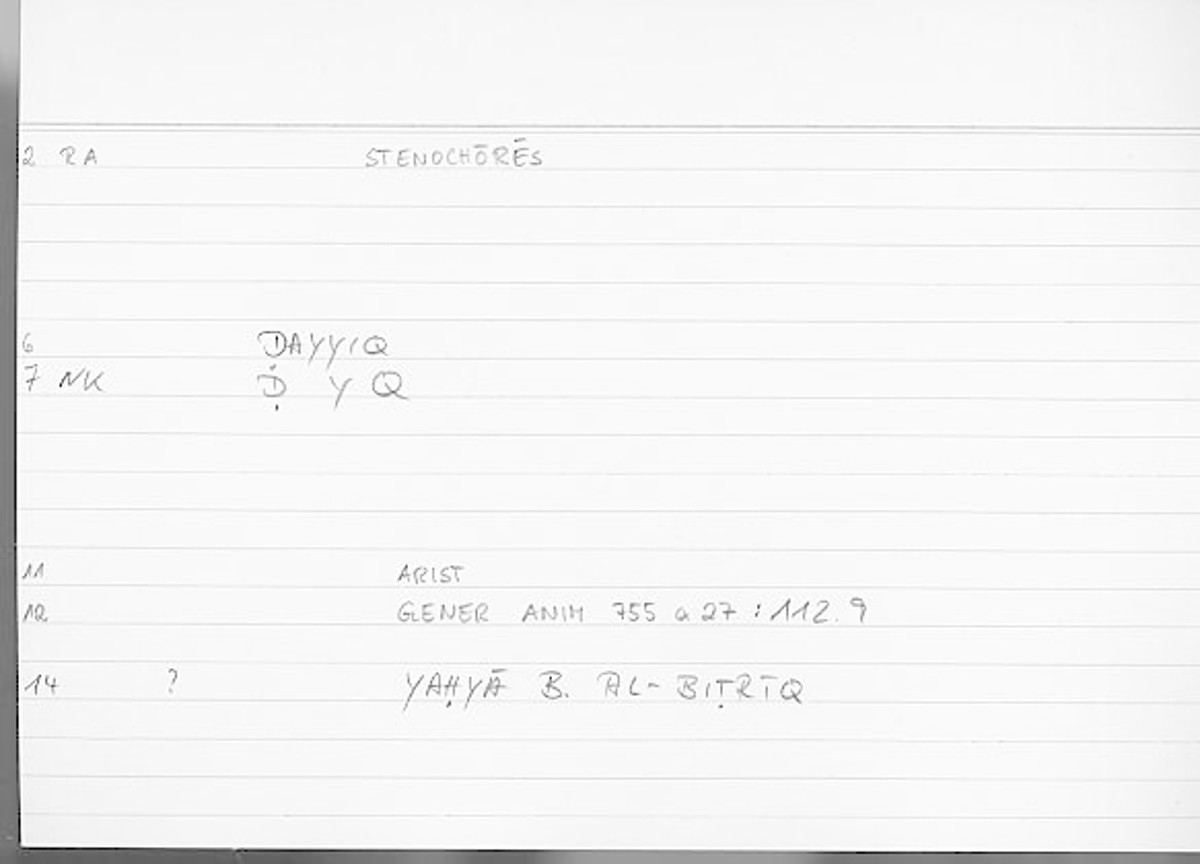 2 RA STENOCHŌRĒS
6 ḌAYYIQ
7 NK Ḍ Y Q
11 ARIST
12 GENER ANIM 755 a 27 : 112.9
14 ? YAḤYĀ B. AL-BIṬRĪQ